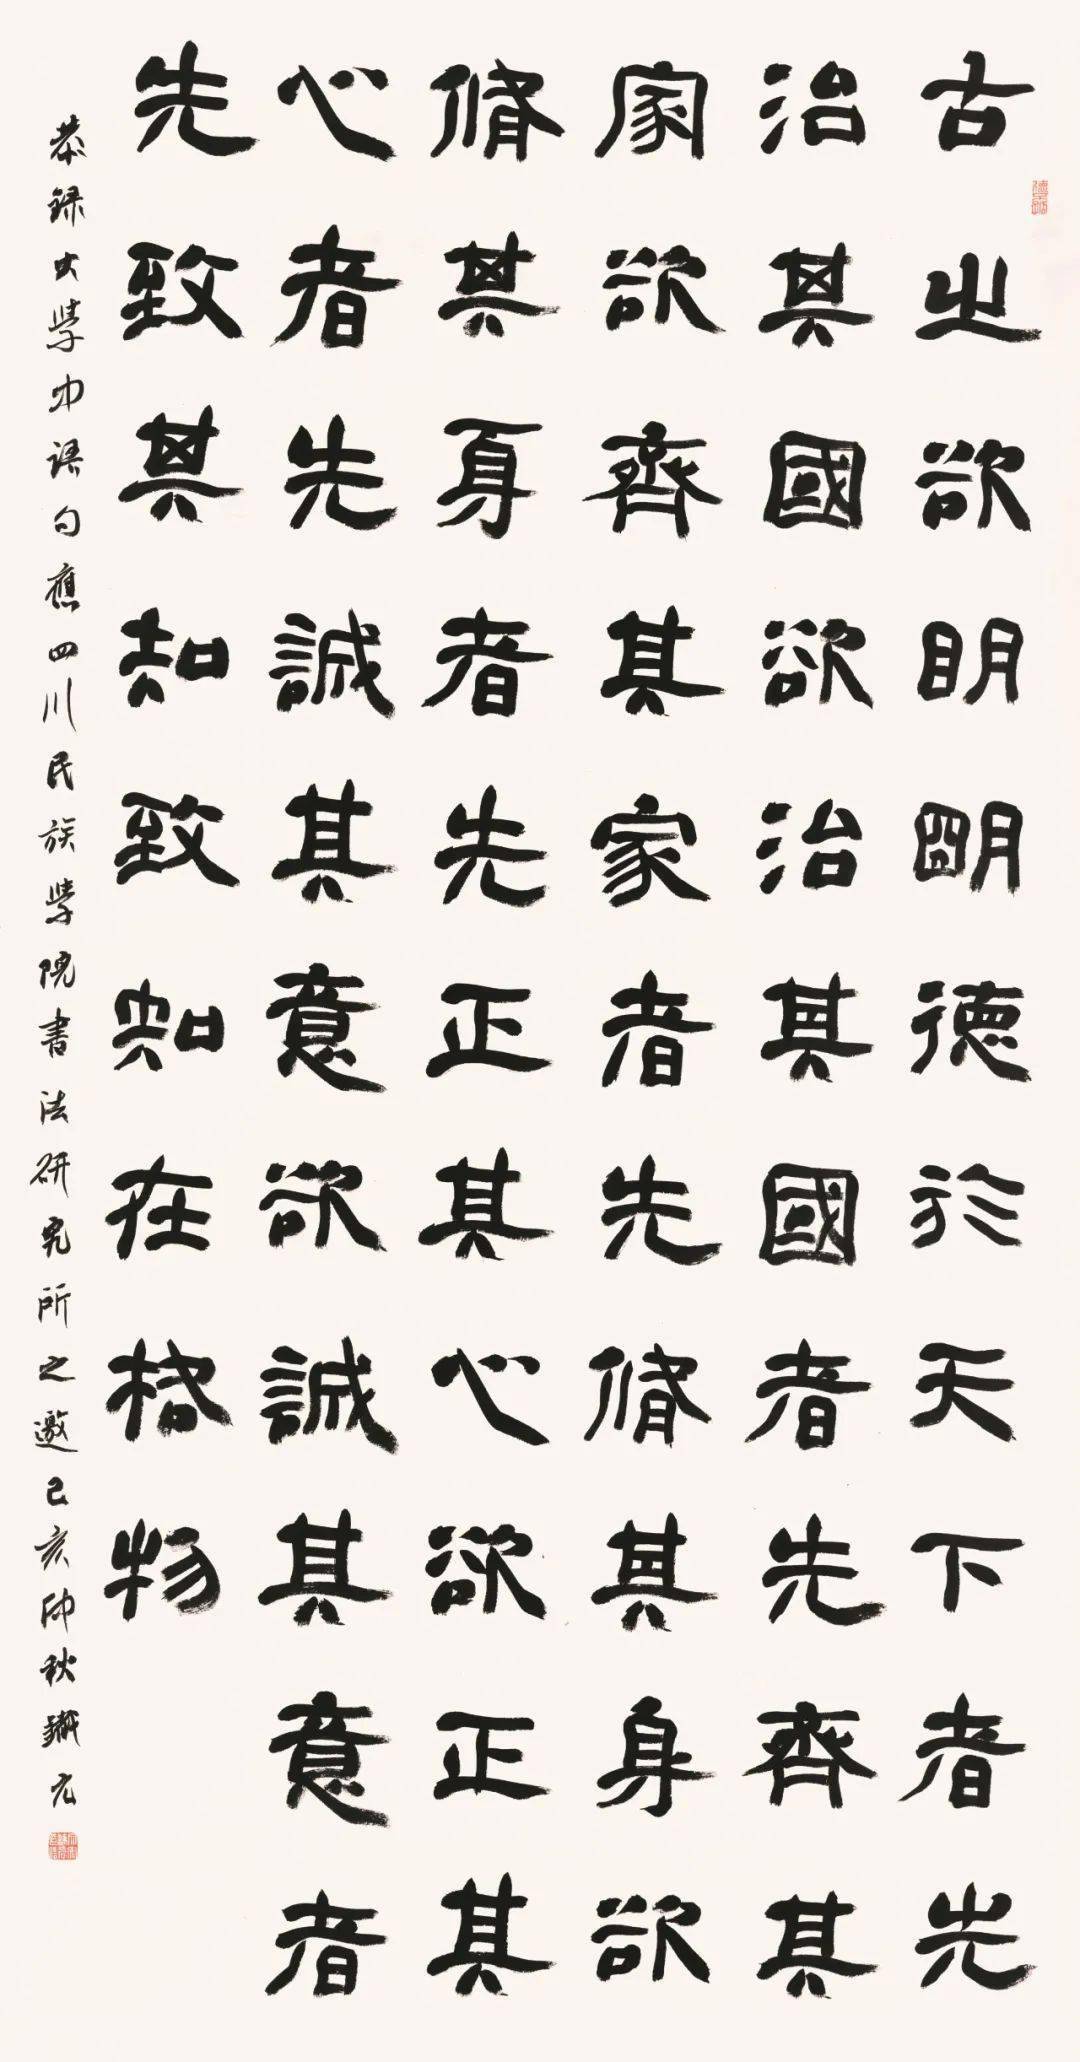 古之欲明明德於天下者先
治其國欲治其國者先齊其
家欲齊其家者先脩其身欲
脩其身者先正其心欲正其
心者先誠其意欲誠其意者
先致其知致知在格物
恭録大學中語句應四川民族學院書法研究所之邀己亥仲秋